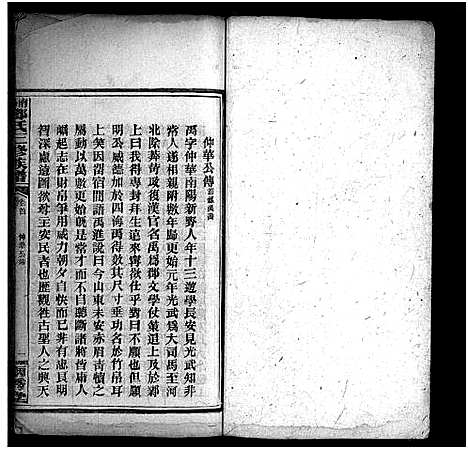 仲華公傳
禹字仲華南陽新野人年十三遊學長安見光武知非
常人遂相親附數年歸更始元年光武爲大司馬至河
北除莽苛政復漢官名禹爲郡文學仗策追上及於鄴
上曰我得專封拜生遠來寧欲仕乎對曰不願也但願
明公威德加於四海禹得效其尺寸垂功名於竹帛耳
上笑因留宿間語禹進說曰今山東未安赤眉青犢之
屬動以萬數更始既是常才而不自聽斷諸將皆庸人
崛起志在財帛爭用威力朝夕自快而已非有忠良明
智深慮遠圖欲尊主安民者也歷觀往古聖人之興天
鄧氏三修族譜
卷首
仲華公傳
一